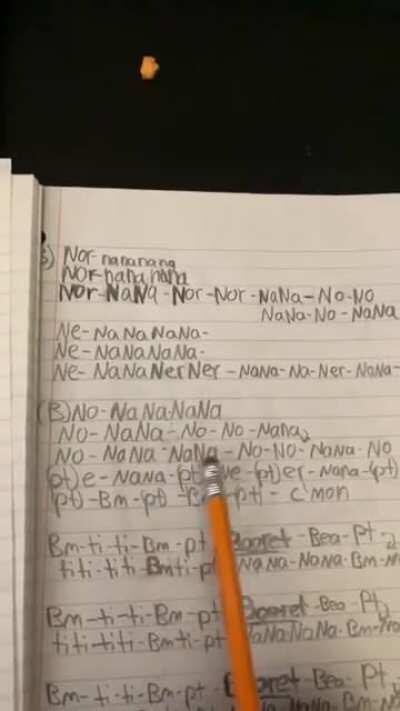 Nor-nananang
Nor-nana nana
Nor-NaNa-Nor-Nor-NaNa-No-No
NaNa-No-NaNa
Ne-NaNaNaNa-
Ne-NaNaNaNa-
Ne-NaNaNerNer-NaNa-Na-Ner-NaNa-
(B)No-NaNaNaNa
No-NaNa-No-No-Nana
No-NaNa-NaNa-No-No-NaNa-No
(pt)e-NaNa-(pt) (pt)er-Nana-(pt)
(pt)-Bm-(pt) (pt)-c'mon
Bm-ti-ti-Bm-pt -Bea-Pt
titi-titi-Bmti-p NaNa-NaNa-Bm-
Bm-ti-ti-Bm-pt -Bea-Pt
titi-titi-Bmti-pt NaNaNaNa-Bm-
Bm-ti-ti-Bm-pt -Bea-Pt